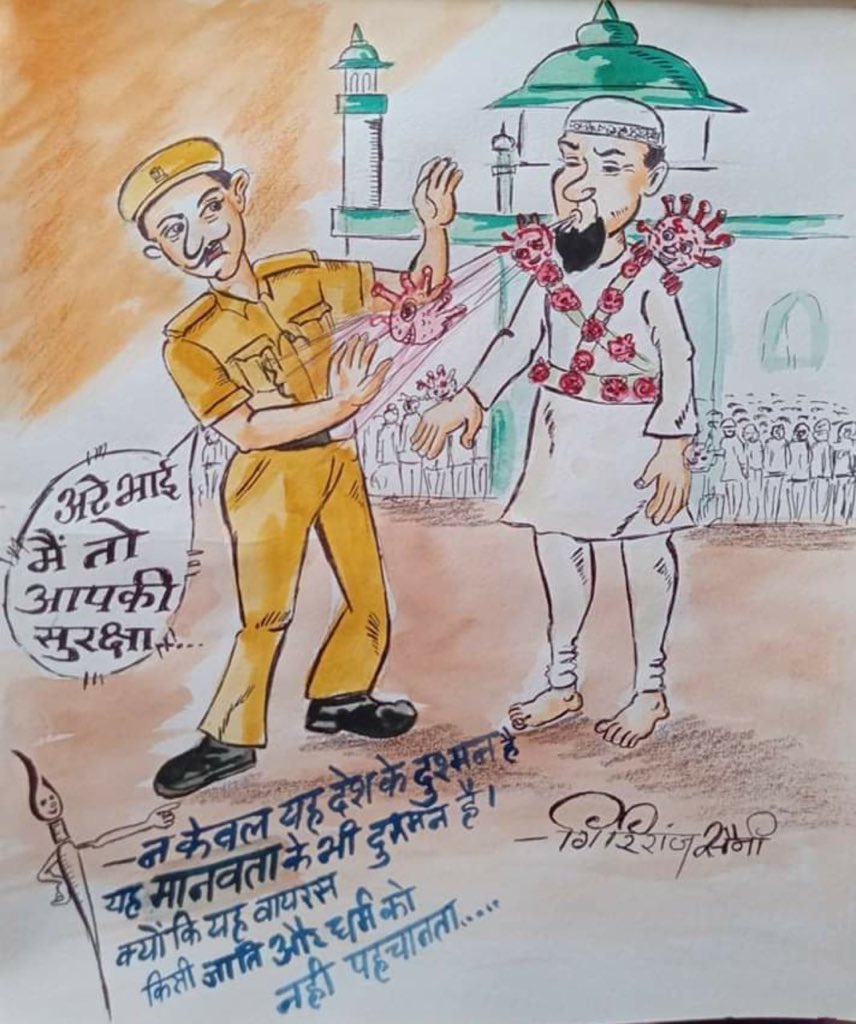 अरे भाई
मैं तो
आपकी
सुरक्षा....
—न केवल यह देश के दुश्मन है
यह मानवता के भी दुश्मन है।
क्योंकि यह वायरस
किसी जाति और धर्म को
नही पहचानता.....
—गिरिराज सैनी